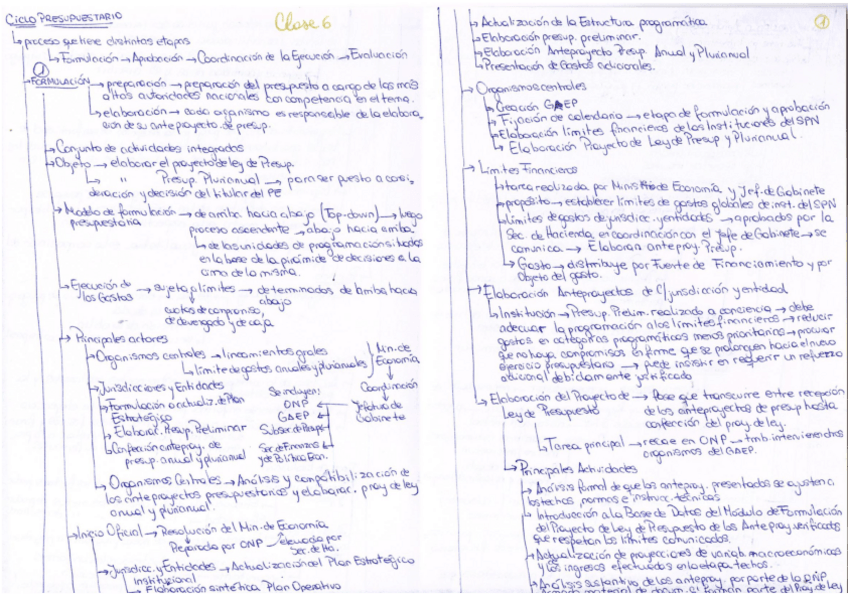 CICLO PRESUPUESTARIO
Clase 6
↳ proceso que tiene distintas etapas
↳ Formulación → Aprobación → Coordinación de la Ejecución → Evaluación
①
→ FORMULACIÓN → preparación → preparación del presupuesto a cargo de las más
altas autoridades nacionales con competencia en el tema.
→ elaboración → cada organismo es responsable de la elabora
ción de su anteproyecto de presup.
→ Conjunto de actividades integradas
→ Objeto → elaborar el proyecto de ley de Presup.
↳ " Presup. Plurianual → para ser puesto a consi,
deración y decisión del titular del PE
→ Modelo de formulación → de arriba hacia abajo (Top-down) → luego
presupuestaria proceso ascendente → abajo hacia arriba
↳ de las unidades de programación situadas
en la base de la pirámide de decisiones a la
cima de la misma.
→ Ejecución de → sujeta a límites → determinados de arriba hacia
los Gastos abajo
cuotas de compromiso,
de devengado y de caja
→ Principales actores
→ Organismos centrales → lineamientos grales
↳ límite de gastos anuales y plurianuales
Min. de
Economía
Coordinación
Jefatura de
Gabinete
→ Jurisdicciones y Entidades
→ Formulación o actualiz. de Plan
Estratégico
→ Elaborac. Presup. Preliminar
→ Confección anteproy. de
presup. anual y plurianual
Se incluyen:
ONP
GAEP
Subsec de Presup
Sec. de Finanzas
y de Política Econ.
→ Organismos Centrales → Análisis y compatibilización de
los anteproyectos presupuestarios y elaborac. proy de ley
anual y plurianual.
→ Inicio Oficial → Resolución del Min. de Economía
Preparada por ONP elevada por
Sec. de Ha.
→ Jurisdicc. y Entidades → Actualización del Plan Estratégico
Institucional
→ Elaboración sintética Plan Operativo
①
→ Actualización de la Estructura programática
→ Elaboración presup. preliminar.
→ Elaboración Anteproyecto Presup. Anual y Plurianual
→ Presentación de Gastos adicionales.
→ Organismos centrales
→ Creación GAEP
→ Fijación de calendario → etapa de formulación y aprobación
→ Elaboración límites financieros de las Instituciones del SPN
→ Elaboración Proyecto de Ley de Presup y Plurianual.
→ Límites Financieros
→ tarea realizada por Minist de Economía y Jef. de Gabinete
→ propósito → establecer límites de gastos globales de inst. del SPN
→ límites de gastos de jurisdicc. y entidades → aprobados por la
Sec. de Hacienda, en coordinación con el Jefe de Gabinete → se
comunica → Elaboran anteproy. Presup.
→ Gasto → distribuye por Fuente de Financiamiento y por
Objeto del gasto.
→ Elaboración Anteproyectos de C/jurisdicción y entidad
↳ Institución → Presup. Prelim. realizado a conciencia → debe
adecuar la programación a los límites financieros → reducir
gastos en categorías programáticas menos prioritarias → procurar
que no haya compromisos en firme que se prolonguen hacia el nuevo
ejercicio presupuestario → puede insistir en requerir un refuerzo
adicional debidamente justificado
→ Elaboración del Proyecto de → Fase que transcurre entre recepción
Ley de Presupuesto de los anteproyectos de presup hasta
confección del proy. de ley.
↳ Tarea principal → recae en ONP → tmb. intervienen otros
organismos del GAEP.
→ Principales Actividades
→ Análisis formal de que los anteproy. presentados se ajusten a
los techos, normas e instruc. técnicas
→ Introducción a la Base de Datos del Módulo de Formulación
del Proyecto de Ley de Presupuesto de los Anteproy. verificados
que respetan los límites comunicados.
→ Actualización de proyecciones de variab. macroeconómicas
y los ingresos efectuados en la etapa techos.
→ Análisis sustantivo de los anteproy. por parte de la ONP